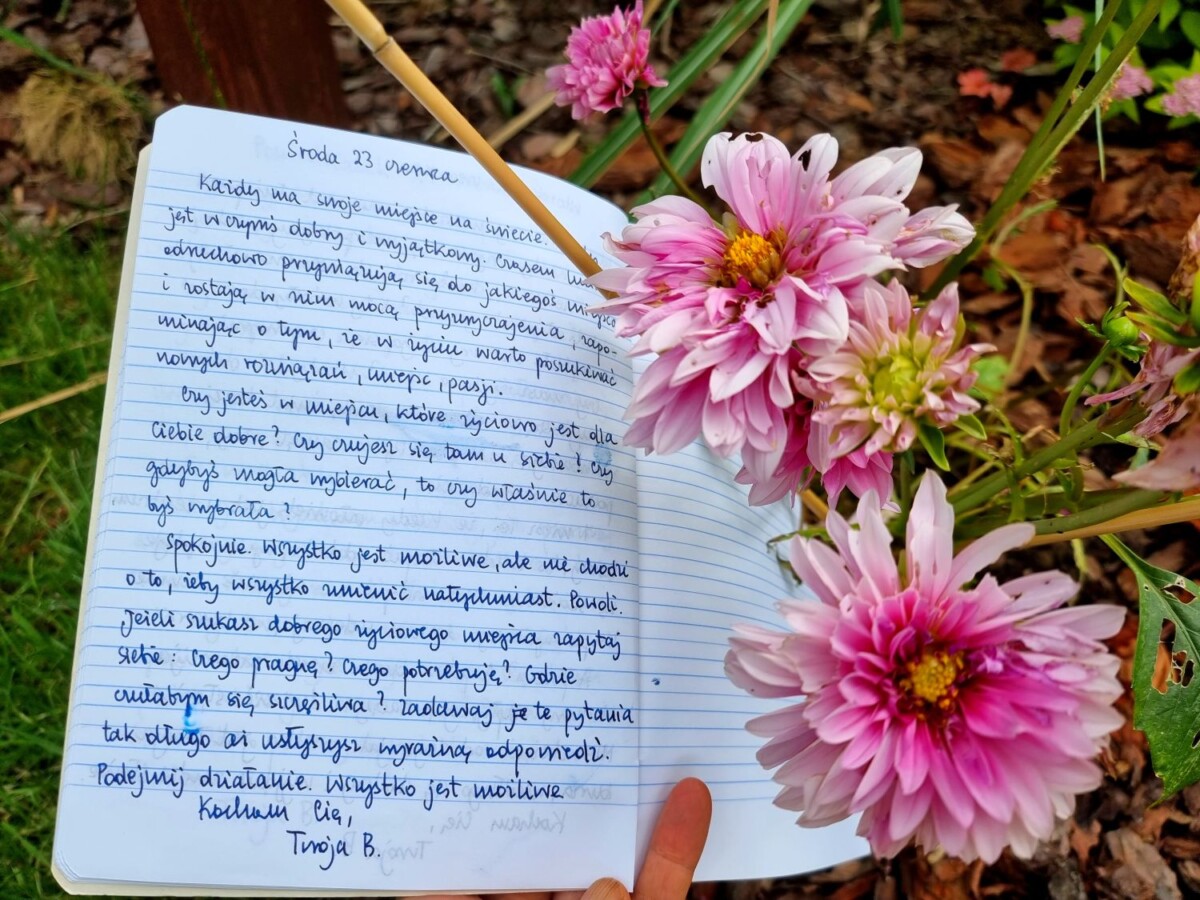 Środa 23 czerwca
Każdy ma swoje miejsce na świecie.
jest w czymś dobry i wyjątkowy. Czasem
odruchowo przywiązują się do jakiegoś miejsca
i zostają w nim mocą przyzwyczajenia, zapo-
minając o tym, że w życiu warto poszukiwać
nowych rozwiązań, miejsc, pasji.
Czy jesteś w miejscu, które życiowo jest dla
Ciebie dobre? Czy czujesz się tam u siebie? Czy
gdybyś mogła wybierać, to czy właśnie to
byś wybrała?
Spokojnie. Wszystko jest możliwe, ale nie chodzi
o to, żeby wszystko zmienić natychmiast. Powoli.
Jeżeli szukasz dobrego życiowego miejsca zapytaj
siebie: Czego pragnę? Czego potrzebuję? Gdzie
czułabym się szczęśliwa? Zadawaj je te pytania
tak długo aż usłyszysz wyraźną odpowiedź.
Podejmij działanie. Wszystko jest możliwe
Kocham Cię,
Twoja B.